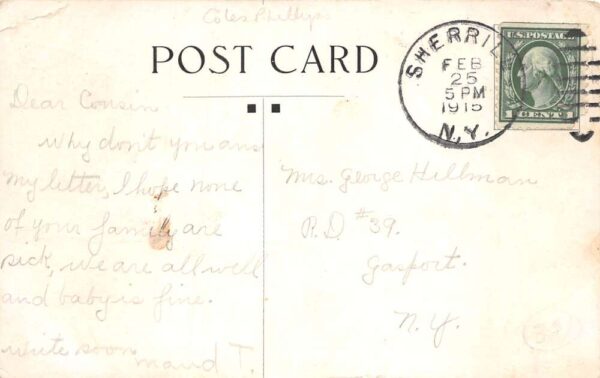 Coles Phillips
POST CARD
SHERRILL
FEB
25
5 PM
1915
N.Y.
U.S. POSTAGE
1 CENT 1
Dear Cousin
Why don't you ans
my letter, I hope none
of your family are
sick, we are all well
and baby is fine.
write soon
Maud T.
Mrs. George Hillman
R.D. #39.
Gasport.
N.Y.